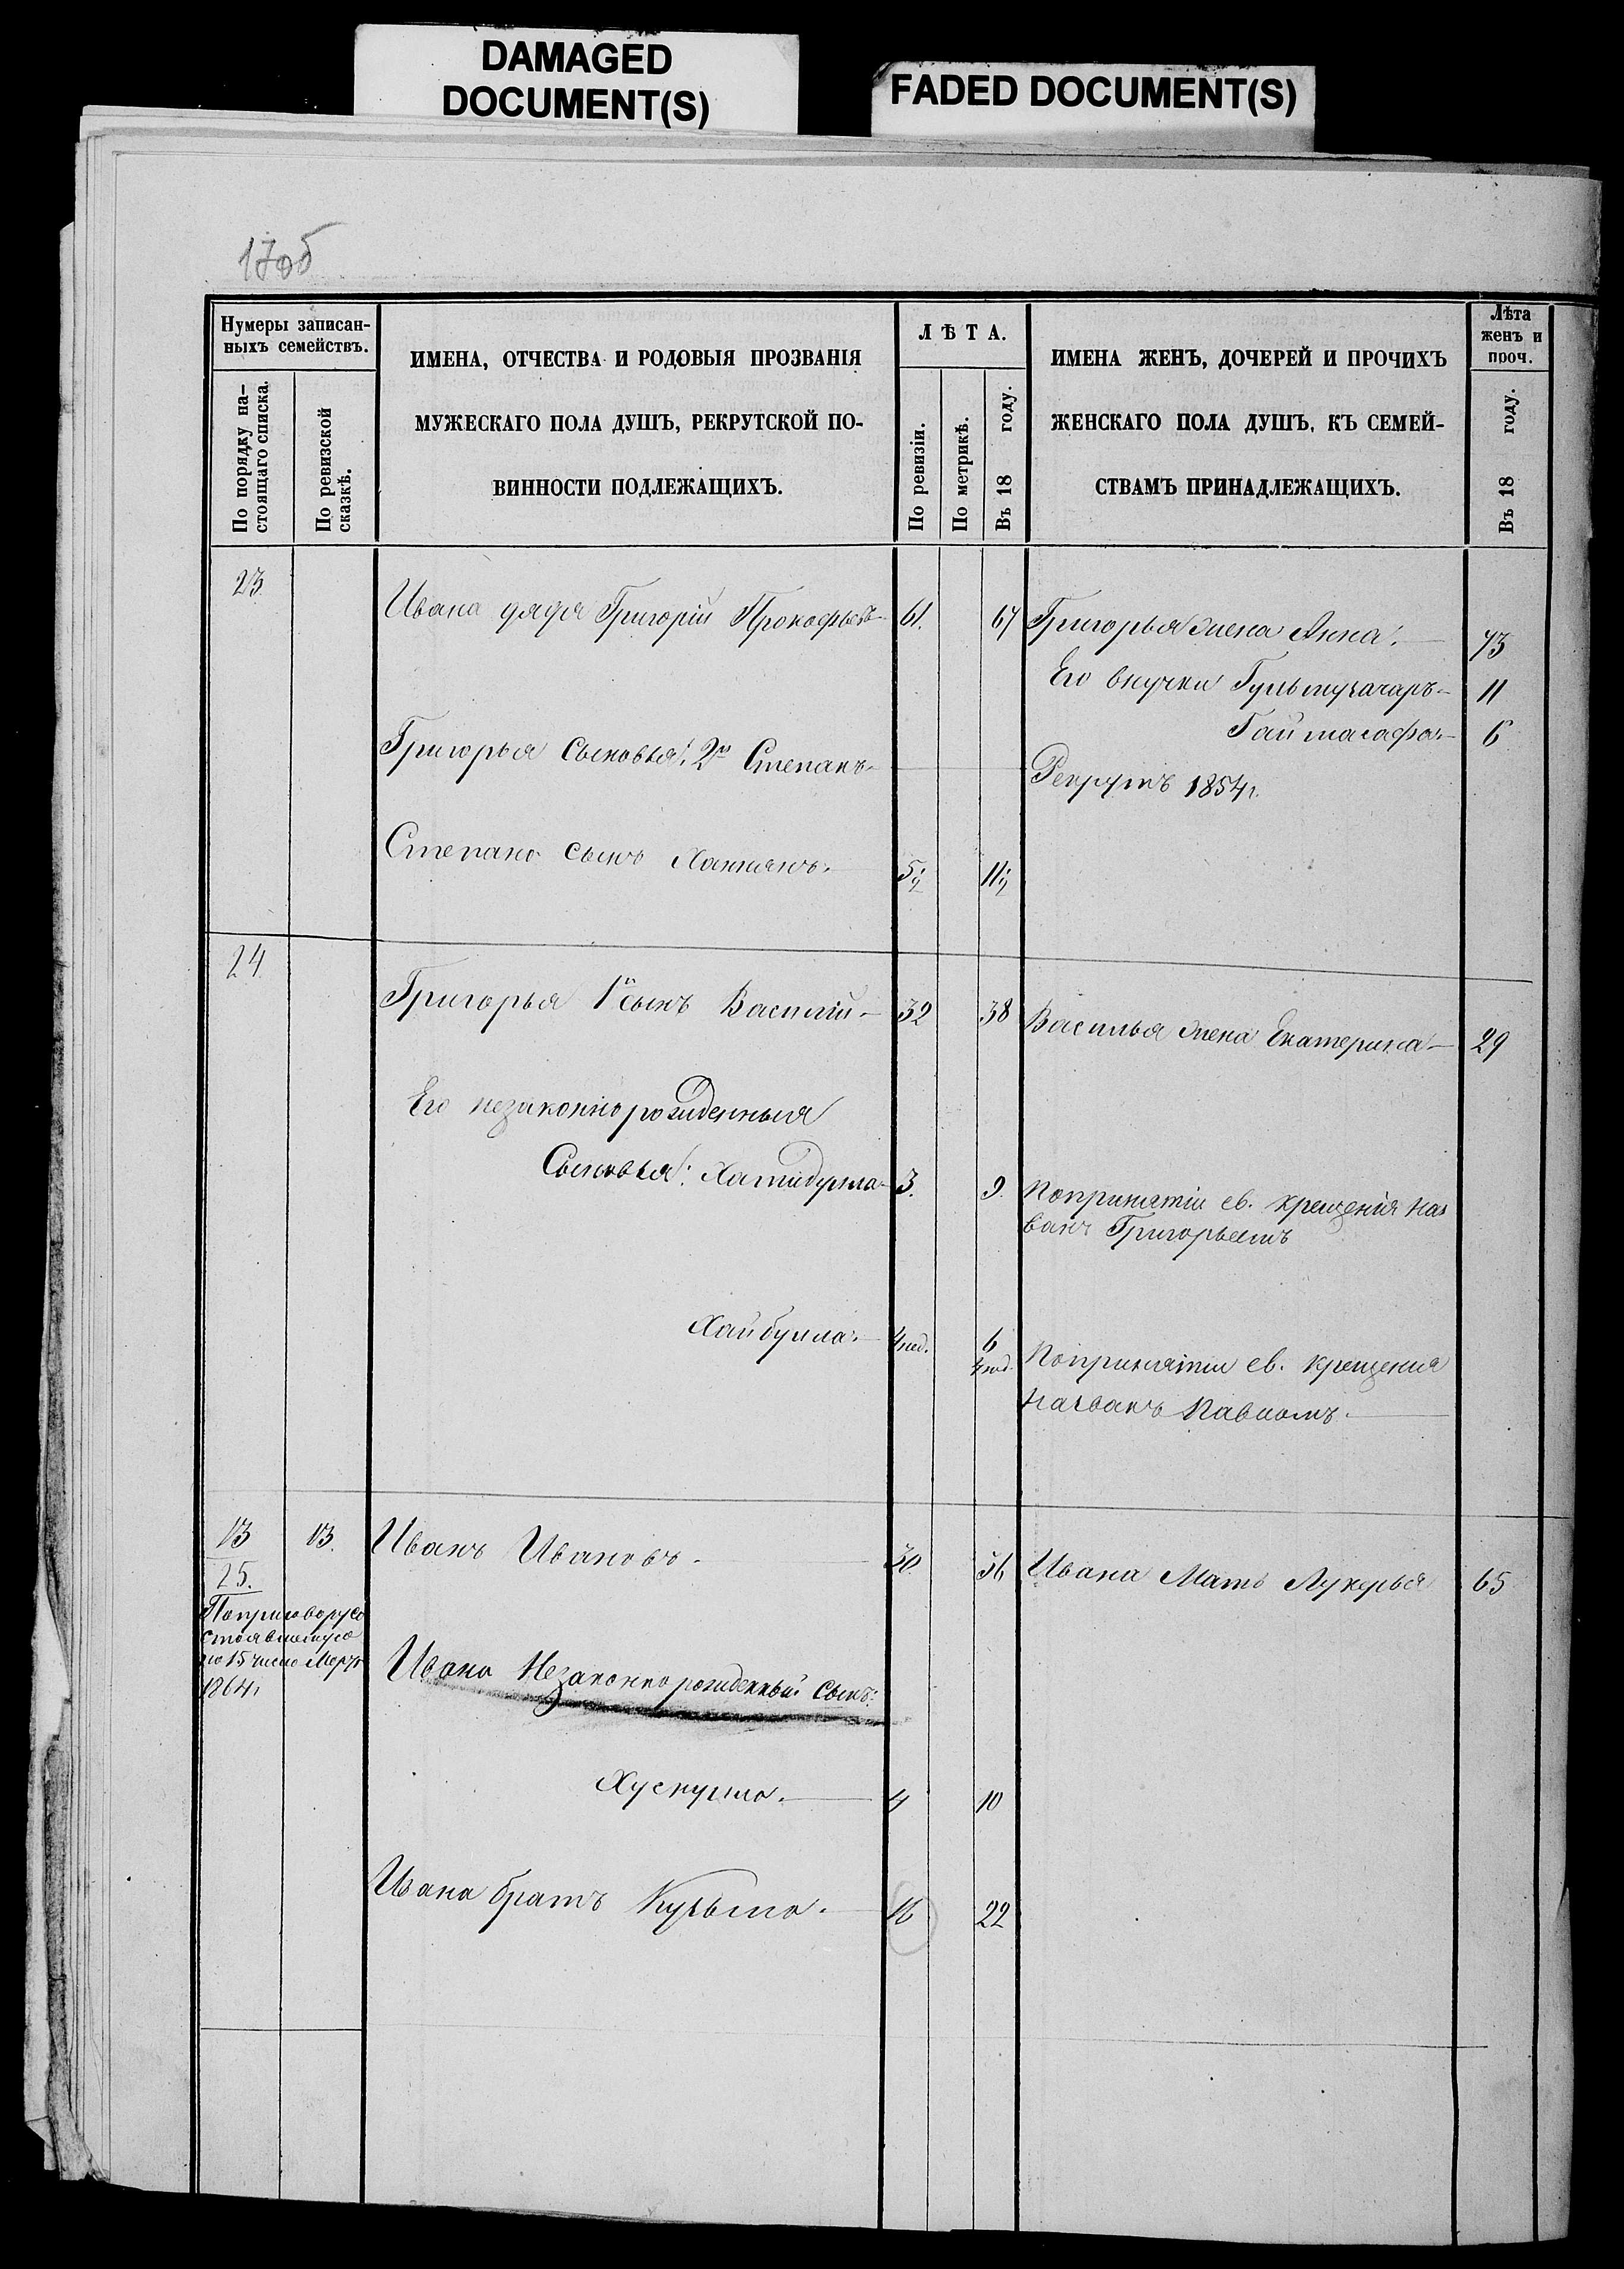 DAMAGED
DOCUMENT(S)
FADED DOCUMENT(S)
17об
Нумеры записан-
ныхъ семействъ.
По порядку на-
стоящаго списка.
По ревизской
сказкѣ.
ИМЕНА, ОТЧЕСТВА И РОДОВЫЯ ПРОЗВАНІЯ
МУЖЕСКАГО ПОЛА ДУШЪ, РЕКРУТСКОЙ ПО-
ВИННОСТИ ПОДЛЕЖАЩИХЪ.
ЛѢТА.
По ревизіи.
По метрикѣ.
Въ 18 году.
ИМЕНА ЖЕНЪ, ДОЧЕРЕЙ И ПРОЧИХЪ
ЖЕНСКАГО ПОЛА ДУШЪ, КЪ СЕМЕЙ-
СТВАМЪ ПРИНАДЛЕЖАЩИХЪ.
Лѣта
женъ и
проч.
Въ 18 году.
23
Ивана дядя Григорій Прокофьевъ 61. 67 Григорья жена Анна. 73
Его внучки 11
6
Григорья сыновья: 2й Степанъ Рекрутъ 1854г.
Степана сынъ
24
Григорья 1й сынъ Василій 32 38 Василья жена Екатерина 29
Его незаконнорожденныя
Сыновья: 3. 9. По принятіи св. крещенія наз
ванъ Григорьемъ
Хайбулла 4 нед. 6
4 нед. По принятіи св. крещенія
названъ Павломъ.
13 13. Иванъ Ивановъ. 30 36 Ивана Мать Лукерья 65
25.
По приговору со
стоявшемуся
15 число
1864г
Ивана Незаконнорожденный сынъ:
4 10
Ивана братъ Кузьма. 16 22